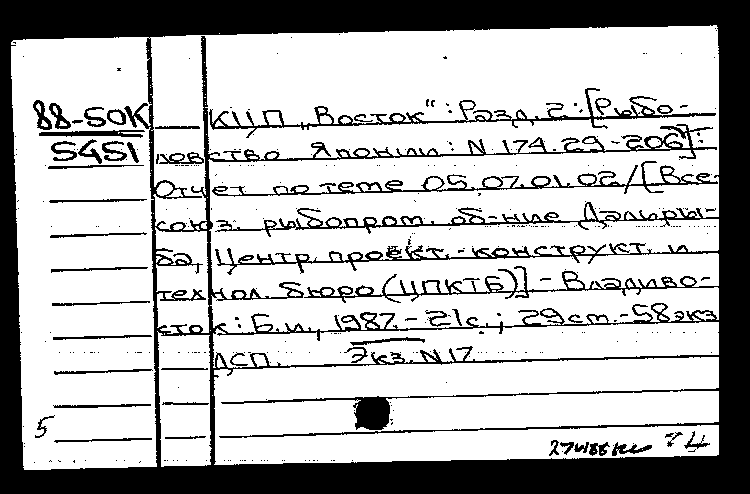 88-50К
5451
КЦП „Восток“: Разд. 2: [Рыбо-
ловство Японии: N 174.29-206Т]:
Отчет по теме 05.07.01.02/[Все-
союз. рыбопром. об-ние Дальры-
ба, Центр. проект.-конструкт. и
технол. бюро (ЦПКТБ)]-Владиво-
сток: Б.и., 1987.-21с.; 29см.-58экз
ДСП. Экз. N 17
5